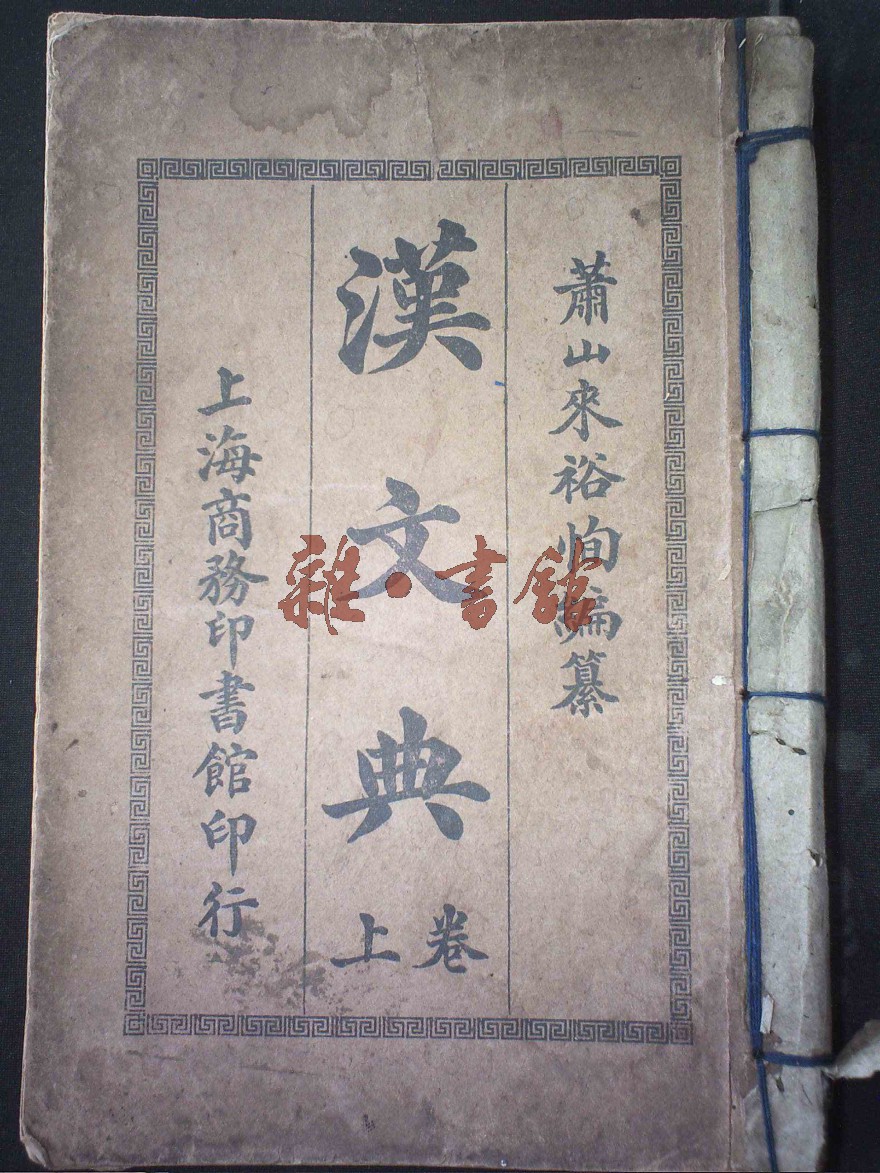 蕭山來裕恂編纂
漢文典
卷上
上海商務印書館印行
雜·書館